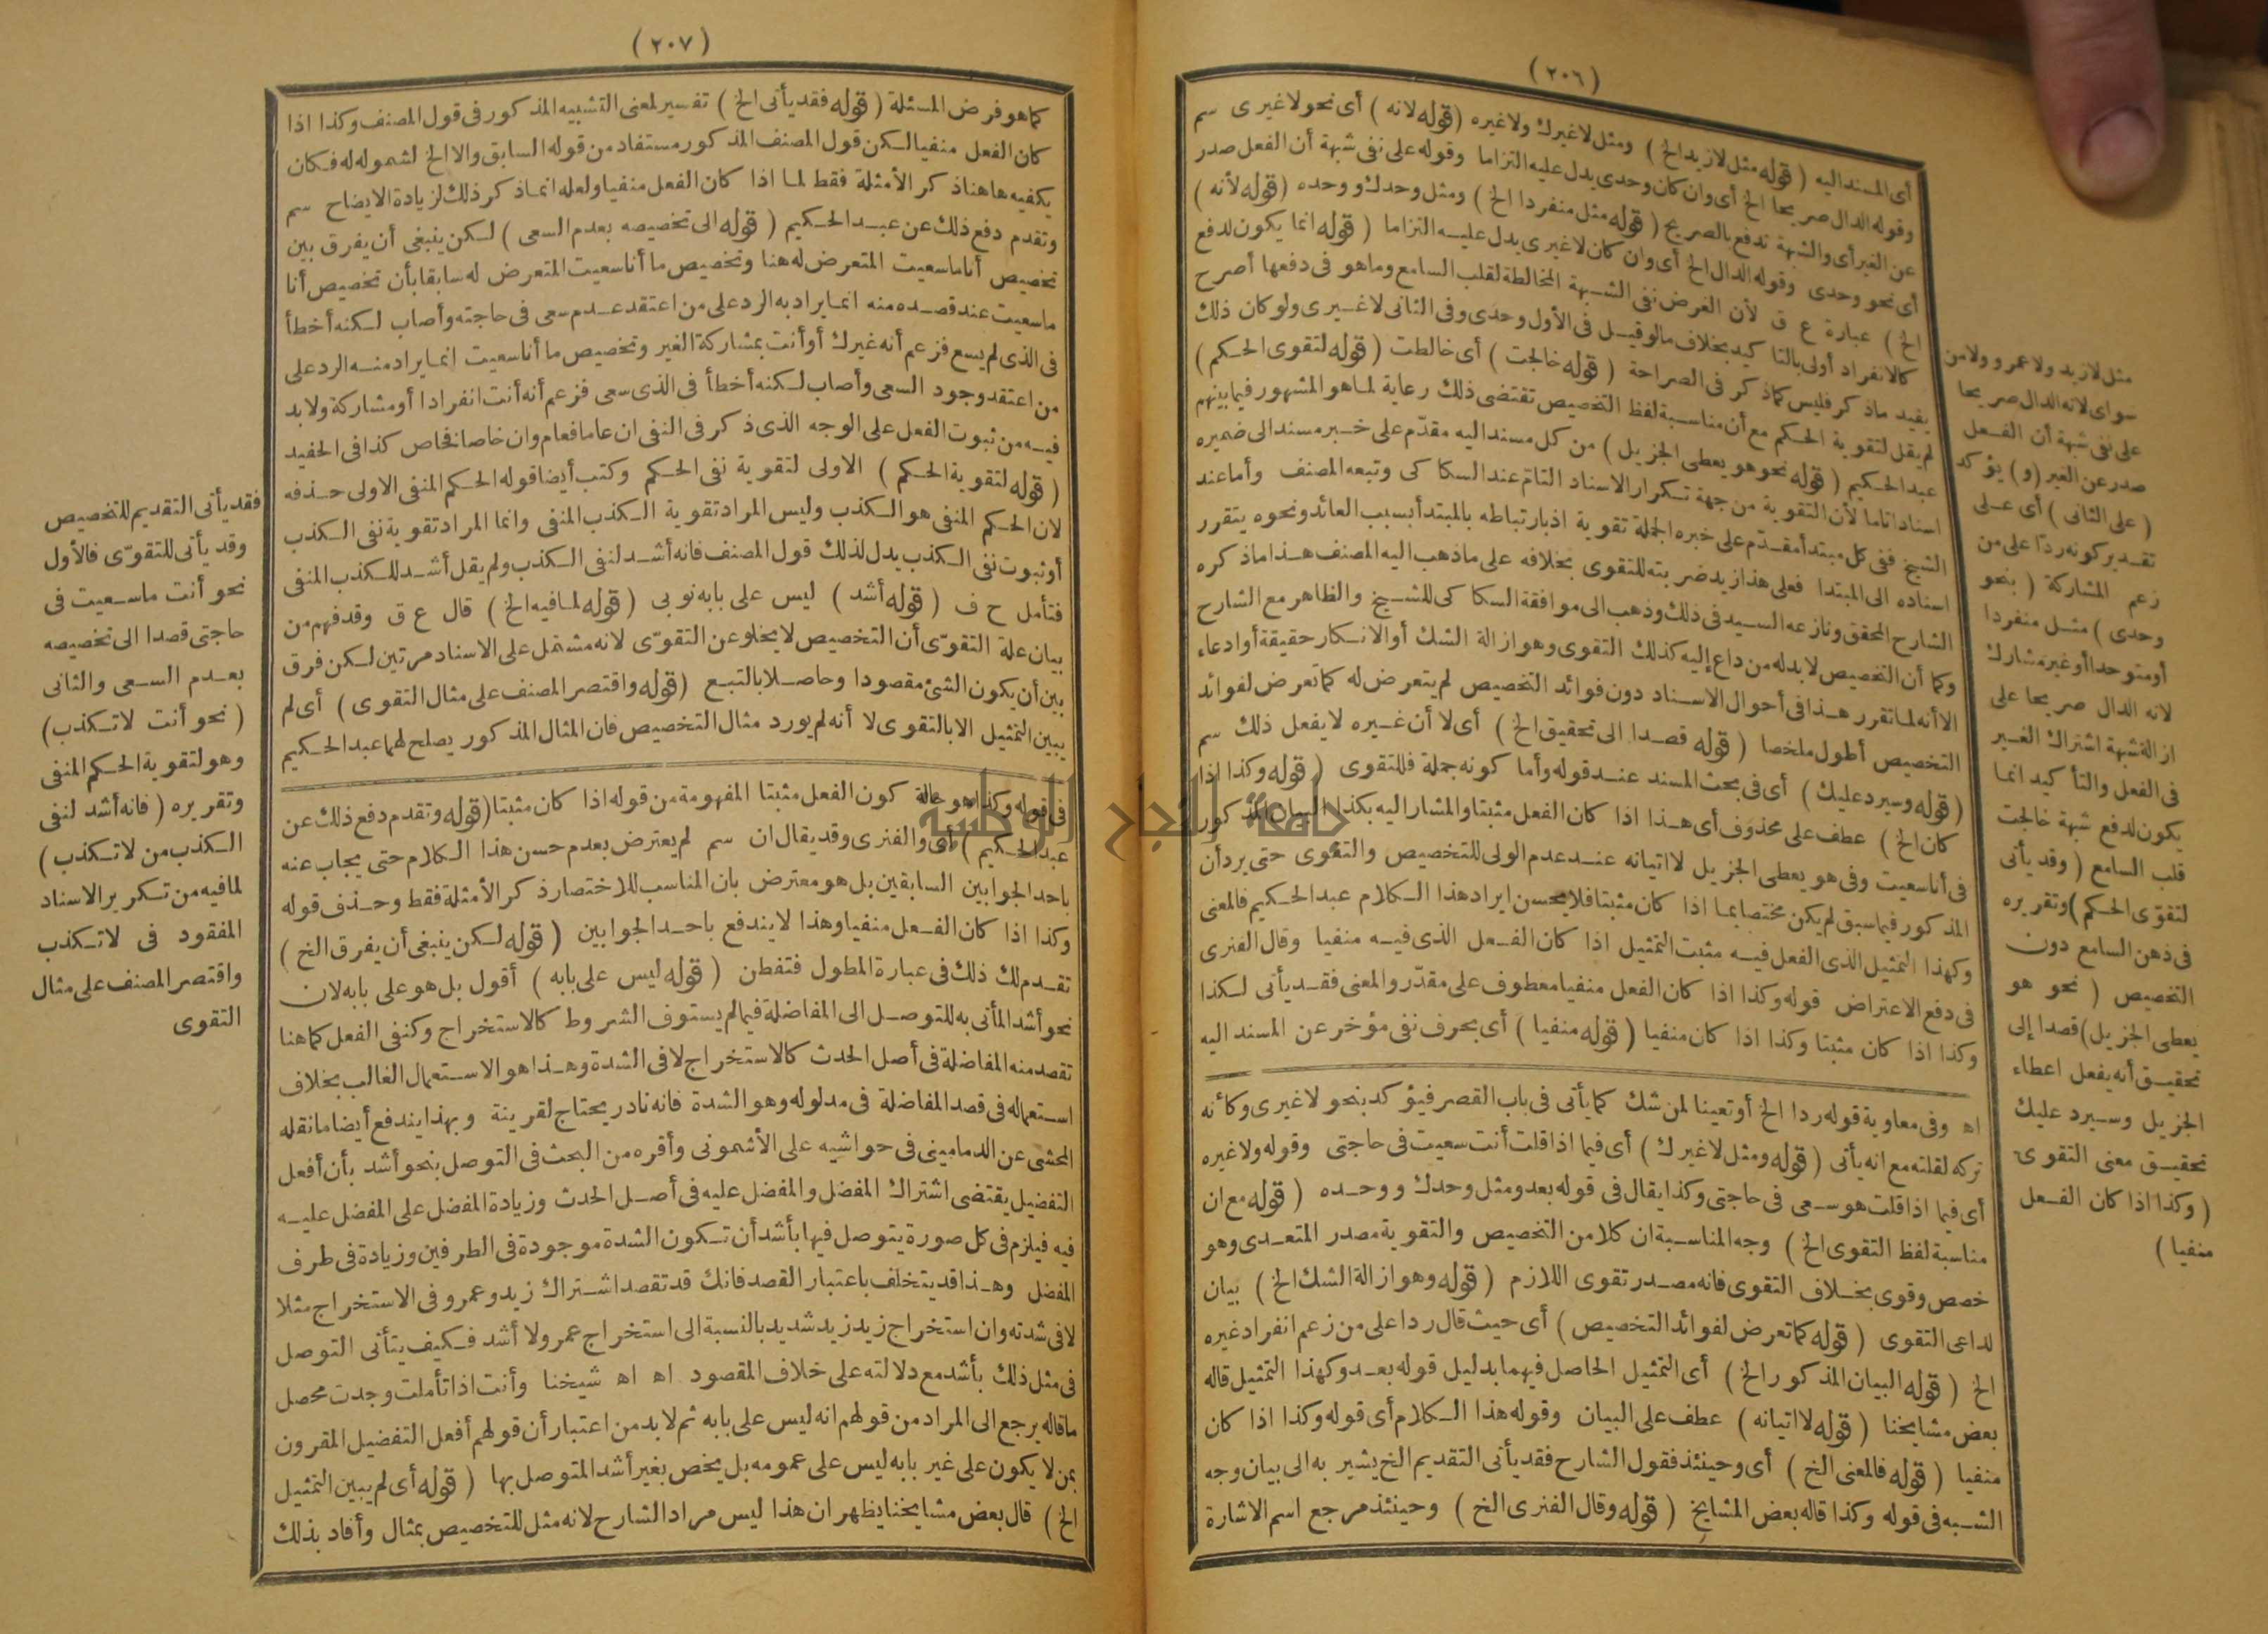 (٢٠٦)
أى المسند اليه (قوله مثل لا زيد الخ) ومثل لا غيرك ولا غيره (قوله لانه) أى نحو لا غيرى سم
وقوله الدال صريحا الخ أى وان كان وحدى يدل عليه التزاما وقوله على نفى شبهة أن الفعل صدر
عن الغير أى والشبهة تدفع بالصريح (قوله مثل منفردا الخ) ومثل وحدك ووحده (قوله لأنه)
أى نحو وحدى وقوله الدال الخ أى وان كان لا غيرى يدل عليه التزاما (قوله انما يكون لدفع
الخ) عبارة ع ق لأن الغرض نفى الشبهة المخالطة لقلب السامع وما هو فى دفعها أصرح
كالانفراد أولى بالتاكيد بخلاف مالو قيل فى الأول وحدى وفى الثانى لا غيرى ولو كان ذلك
يفيد ماذكر فليس كماذكر فى الصراحة (قوله خالجت) أى خالطت (قوله لتقوى الحكم)
لم يقل لتقوية الحكم مع أن مناسبة لفظ التخصيص تقتضى ذلك رعاية لما هو المشهور فيما بينهم
عبد الحكيم (قوله نحو هو يعطى الجزيل) من كل مسند اليه مقدّم على خبر مسند الى ضميره
اسنادا تاما لأن التقوية من جهة تكرار الاسناد التام عند السكاكى وتبعه المصنف وأما عند
الشيخ ففى كل مبتدأ مقدّم على خبره الجملة تقوية اذ بارتباطه بالمبتدأ بسبب العائد ونحوه يتقرر
اسناده الى المبتدا فعلى هذا زيد ضربته للتقوى بخلافه على ما ذهب اليه المصنف هذا ماذكره
الشارح المحقق ونازعه السيد فى ذلك وذهب الى موافقة السكاكى للشيخ والظاهر مع الشارح
وكما أن التخصيص لا بد له من داع إليه كذلك التقوى وهو ازالة الشك أو الانكار حقيقة أو ادعاء
الا أنه لما تقرر هذا فى أحوال الاسناد دون فوائد التخصيص لم يتعرض له كما تعرض لفوائد
التخصيص أطول ملخصا (قوله قصدا الى تحقيق الخ) أى لا أن غيره لا يفعل ذلك سم
(قوله وسيرد عليك) أى فى بحث المسند عند قوله وأما كونه جملة فللتقوى (قوله وكذا اذا
كان الخ) عطف على محذوف أى هذا اذا كان الفعل مثبتا والمشار اليه بكذا البيان المذكور
فى أنا سعيت وفى هو يعطى الجزيل لا اتيانه عند عدم الولى للتخصيص والتقوى حتى يرد أن
المذكور فيما سبق لم يكن مختصا بما اذا كان مثبتا فلا يحسن ايراد هذا الكلام عبد الحكيم فالمعنى
وكهذا التمثيل الذى الفعل فيه مثبت التمثيل اذا كان الفعل الذى فيه منفيا وقال الفنرى
فى دفع الاعتراض قوله وكذا اذا كان الفعل منفيا معطوف على مقدّر والمعنى فقد يأتى لكذا
وكذا اذا كان مثبتا وكذا اذا كان منفيا (قوله منفيا) أى بحرف نفى مؤخر عن المسند اليه
اه وفى معاوية قوله ردا الخ أو تعينا لمن شك كما يأتى فى باب القصر فيؤكد بنحو لا غيرى وكأنه
تركه لقلته مع انه يأتى (قوله ومثل لا غيرك) أى فيما اذا قلت أنت سعيت فى حاجتى وقوله ولا غيره
أى فيما اذا قلت هو سعى فى حاجتى وكذا يقال فى قوله بعد ومثل وحدك ووحده (قوله مع ان
مناسبة لفظ التقوى الخ) وجه المناسبة ان كلا من التخصيص والتقوية مصدر المتعدى وهو
خصص وقوى بخلاف التقوى فانه مصدر تقوى اللازم (قوله وهو ازالة الشك الخ) بيان
لداعى التقوى (قوله كما تعرض لفوائد التخصيص) أى حيث قال ردا على من زعم انفراد غيره
الخ (قوله البيان المذكور الخ) أى التمثيل الحاصل فيهما بدليل قوله بعد وكهذا التمثيل قاله
بعض مشايخنا (قوله لا اتيانه) عطف على البيان وقوله هذا الكلام أى قوله وكذا اذا كان
منفيا (قوله فالمعنى الخ) أى وحينئذ فقول الشارح فقد يأتى التقديم الخ يشير به الى بيان وجه
الشبه فى قوله وكذا قاله بعض المشايخ (قوله وقال الفنرى الخ) وحينئذ مرجع اسم الاشارة
مثل لا زيد ولا عمرو ولا من
سواى لانه الدال صريحا
على نفى شبهة أن الفعل
صدر عن الغير (و) يؤكد
(على الثانى) أى على
تقدير كونه ردّا على من
زعم المشاركة (بنحو
وحدى) مثل منفردا
أو متوحدا أو غير مشارك
لانه الدال صريحا على
ازالة شبهة اشتراك الغير
فى الفعل والتأكيد انما
يكون لدفع شبهة خالجت
قلب السامع (وقد يأتى
لتقوّى الحكم) وتقريره
فى ذهن السامع دون
التخصيص (نحو هو
يعطى الجزيل) قصدا إلى
تحقيق أنه يفعل اعطاء
الجزيل وسيرد عليك
تحقيق معنى التقوى
(وكذا اذا كان الفعل
منفيا)
(٢٠٧)
كما هو فرض المسئلة (قوله فقد يأتى الخ) تفسير لمعنى التشبيه المذكور فى قول المصنف وكذا اذا
كان الفعل منفيا لكن قول المصنف المذكور مستفاد من قوله السابق والا الخ لشموله له فكان
يكفيه هاهنا ذكر الأمثلة فقط لما اذا كان الفعل منفيا ولعله انما ذكر ذلك لزيادة الايضاح سم
وتقدم دفع ذلك عن عبد الحكيم (قوله الى تخصيصه بعدم السعى) لكن ينبغى أن يفرق بين
تخصيص أنا ما سعيت المتعرض له هنا وتخصيص ما أنا سعيت المتعرض له سابقا بأن تخصيص أنا
ما سعيت عند قصده منه انما يراد به الرد على من اعتقد عدم سعى فى حاجته وأصاب لكنه أخطأ
فى الذى لم يسع فزعم أنه غيرك أو أنت بمشاركة الغير وتخصيص ما أنا سعيت انما يراد منه الرد على
من اعتقد وجود السعى وأصاب لكنه أخطأ فى الذى سعى فزعم أنه أنت انفرادا أو مشاركة ولا بد
فيه من ثبوت الفعل على الوجه الذى ذكر فى النفى ان عاما فعام وان خاصا فخاص كذا فى الحفيد
(قوله لتقوية الحكم) الاولى لتقوية نفى الحكم وكتب أيضا قوله الحكم المنفى الاولى حذفه
لان الحكم المنفى هو الكذب وليس المراد تقوية الكذب المنفى وانما المراد تقوية نفى الكذب
أو ثبوت نفى الكذب يدل لذلك قول المصنف فانه أشد لنفى الكذب ولم يقل أشد للكذب المنفى
فتأمل ح ف (قوله أشد) ليس على بابه نوبى (قوله لما فيه الخ) قال ع ق وقد فهم من
بيان علة التقوّى أن التخصيص لا يخلو عن التقوّى لانه مشتمل على الاسناد مرتين لكن فرق
بين أن يكون الشئ مقصودا وحاصلا بالتبع (قوله واقتصر المصنف على مثال التقوى) أى لم
يبين التمثيل الا بالتقوى لا أنه لم يورد مثال التخصيص فان المثال المذكور يصلح لهما عبد الحكيم
فى قوله وكذا هو حالة كون الفعل مثبتا المفهومة من قوله اذا كان مثبتا (قوله وتقدم دفع ذلك عن
عبد الحكيم) أى والفنرى وقد يقال ان سم لم يعترض بعدم حسن هذا الكلام حتى يجاب عنه
باحد الجوابين السابقين بل هو معترض بان المناسب للاختصار ذكر الأمثلة فقط وحذف قوله
وكذا اذا كان الفعل منفيا وهذا لا يندفع باحد الجوابين (قوله لكن ينبغى أن يفرق الخ)
تقدم لك ذلك فى عبارة المطول فتفطن (قوله ليس على بابه) أقول بل هو على بابه لان
نحو أشد المأتى به للتوصل الى المفاضلة فيما لم يستوف الشروط كالاستخراج وكنفى الفعل كما هنا
تقصد منه المفاضلة فى أصل الحدث كالاستخراج لا فى الشدة وهذا هو الاستعمال الغالب بخلاف
استعماله فى قصد المفاضلة فى مدلوله وهو الشدة فانه نادر يحتاج لقرينة وبهذا يندفع أيضا ما نقله
المحشى عن الدمامينى فى حواشيه على الأشمونى وأقره من البحث فى التوصل بنحو أشد بأن أفعل
التفضيل يقتضى اشتراك المفضل والمفضل عليه فى أصل الحدث وزيادة المفضل على المفضل عليه
فيه فيلزم فى كل صورة يتوصل فيها بأشد أن تكون الشدة موجودة فى الطرفين وزيادة فى طرف
المفضل وهذا قد يتخلف باعتبار القصد فانك قد تقصد اشتراك زيد وعمرو فى الاستخراج مثلا
لا فى شدته وان استخراج زيد زيد شديد بالنسبة الى استخراج عمر ولا أشد فكيف يتأتى التوصل
فى مثل ذلك بأشد مع دلالته على خلاف المقصود اه اه شيخنا وأنت اذا تأملت وجدت محصل
ما قاله يرجع الى المراد من قولهم انه ليس على بابه ثم لا بد من اعتبار أن قولهم أفعل التفضيل المقرون
بمن لا يكون على غير بابه ليس على عمومه بل يخص بغير أشد المتوصل بها (قوله أى لم يبين التمثيل
الخ) قال بعض مشايخنا يظهر ان هذا ليس مراد الشارح لانه مثل للتخصيص بمثال وأفاد بذلك
فقد يأتى التقديم للتخصيص
وقد يأتى للتقوّى فالأول
نحو أنت ما سعيت فى
حاجتى قصدا الى تخصيصه
بعدم السعى والثانى
(نحو أنت لا تكذب)
وهو لتقوية الحكم المنفى
وتقريره (فانه أشد لنفى
الكذب من لا تكذب)
لما فيه من تكرير الاسناد
المفقود فى لا تكذب
واقتصر المصنف على مثال
التقوى
جامعة النجاح الوطنية